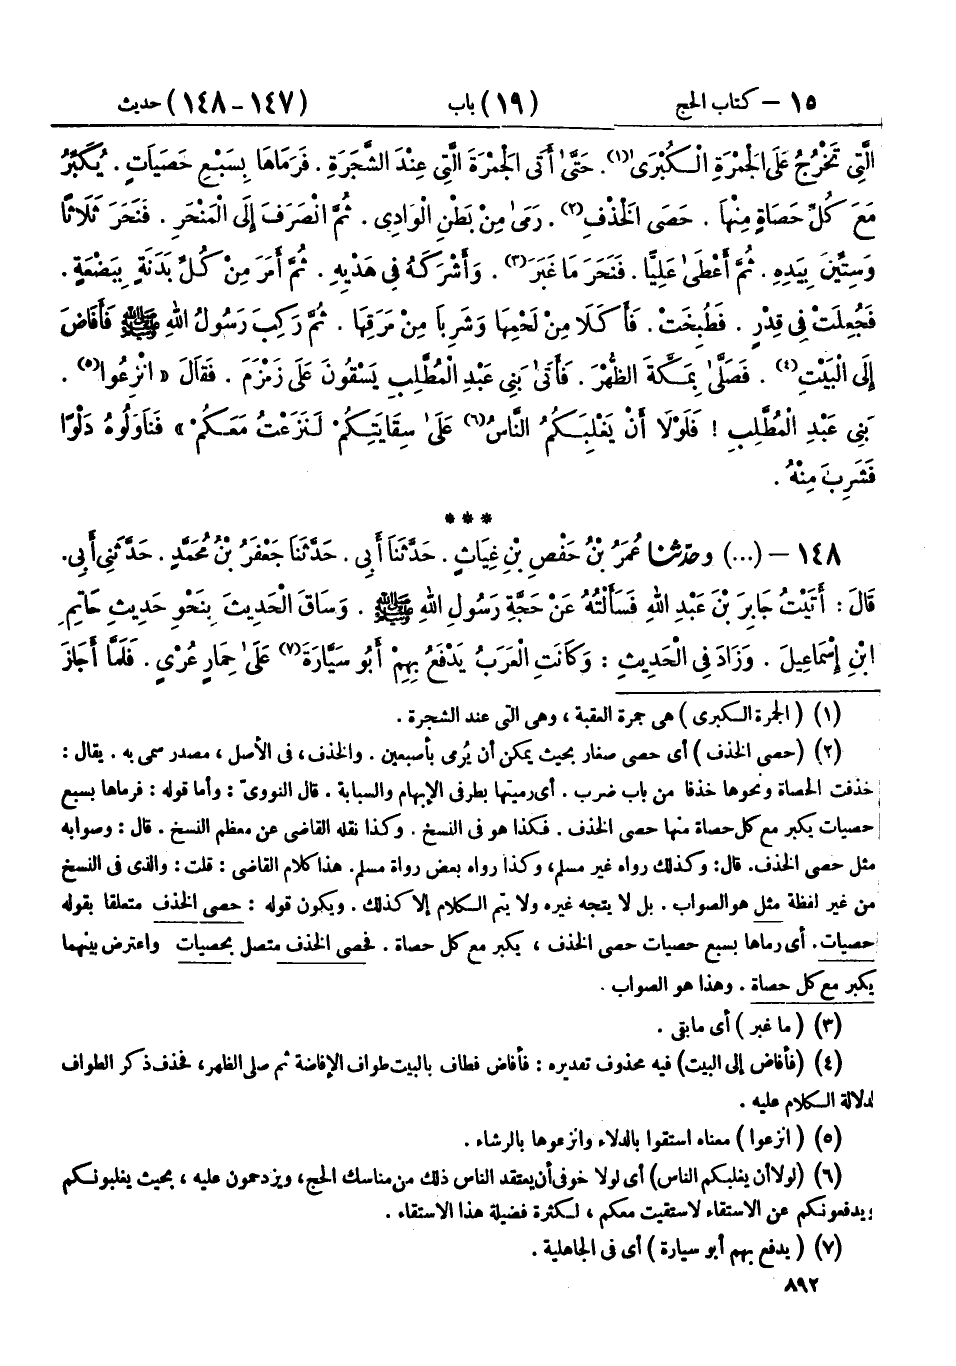 ١٥ – كتاب الحج (١٩) باب (١٤٧ – ١٤٨) حديث
الَّتِي تَخْرُجُ عَلَى الْجَمْرَةِ الْكُبْرَىٰ(١). حَتَّىٰ أَتَى الْجَمْرَةَ الَّتِي عِنْدَ الشَّجَرَةِ. فَرَمَاهَا بِسَبْعِ حَصَيَاتٍ. يُكَبِّرُ
مَعَ كُلِّ حَصَاةٍ مِنْهَا. حَصَى الْخَذْفِ(٢). رَمَىٰ مِنْ بَطْنِ الْوَادِى. ثُمَّ انْصَرَفَ إِلَى الْمَنْحَرِ. فَنَحَرَ ثَلَاثًا
وَسِتِّينَ بِيَدِهِ. ثُمَّ أَعْطَىٰ عَلِيًّا. فَنَحَرَ مَا غَبَرَ(٣). وَأَشْرَكَهُ فِي هَدْيِهِ. ثُمَّ أَمَرَ مِنْ كُلِّ بَدَنَةٍ بِبَضْعَةٍ.
فَجُعِلَتْ فِي قِدْرٍ. فَطُبِخَتْ. فَأَكَلَا مِنْ لَحْمِهَا وَشَرِبَا مِنْ مَرَقِهَا. ثُمَّ رَكِبَ رَسُولُ اللهِ ﷺ فَأَفَاضَ
إِلَى الْبَيْتِ(٤). فَصَلَّىٰ بِمَكَّةَ الظُّهْرَ. فَأَتَىٰ بَنِي عَبْدِ الْمُطَّلِبِ يَسْقُونَ عَلَى زَمْزَمَ. فَقَالَ « انْزِعُوا(٥).
بَنِي عَبْدِ الْمُطَّلِبِ ! فَلَوْلَا أَنْ يَغْلِبَكُمُ النَّاسُ(٦) عَلَىٰ سِقَايَتِكُمْ لَنَزَعْتُ مَعَكُمْ » فَنَاوَلُوهُ دَلْوًا
فَشَرِبَ مِنْهُ.
* * *
١٤٨ – (...) وحَدَّثَنَا عُمَرُ بْنُ حَفْصِ بْنِ غِيَاثٍ. حَدَّثَنَا أَبِي. حَدَّثَنَا جَعْفَرُ بْنُ مُحَمَّدٍ. حَدَّثَنِي أَبِي.
قَالَ : أَتَيْتُ جَابِرَ بْنَ عَبْدِ اللهِ فَسَأَلْتُهُ عَنْ حَجَّةِ رَسُولِ اللهِ ﷺ. وَسَاقَ الْحَدِيثَ بِنَحْوِ حَدِيثِ حَاتِمِ
ابْنِ إِسْمَاعِيلَ. وَزَادَ فِي الْحَدِيثِ : وَكَانَتِ الْعَرَبُ يَدْفَعُ بِهِمْ أَبُو سَيَّارَةَ(٧) عَلَىٰ حِمَارٍ عُرْىٍ. فَلَمَّا أَجَازَ
(١) ( الجمرة الكبرى ) هى جمرة العقبة ، وهى التى عند الشجرة .
(٢) (حصى الخذف ) أى حصى صغار بحيث يمكن أن يُرمى بأصبعين . والخذف، فى الأصل ، مصدر سمى به . يقال :
خذفت الحصاة ونحوها خذفا من باب ضرب . أى رميتها بطرفى الإبهام والسبابة . قال النووىّ : وأما قوله : فرماها بسبع
حصيات يكبر مع كل حصاة منها حصى الخذف . فكذا هو فى النسخ . وكذا نقله القاضى عن معظم النسخ . قال : وصوابه
مثل حصى الخذف. قال : وكذلك رواه غير مسلم، وكذا رواه بعض رواة مسلم. هذا كلام القاضى : قلت : والذى فى النسخ
من غير لفظة مثل هو الصواب . بل لا يتجه غيره ولا يتم الكلام إلا كذلك . ويكون قوله : حصى الخذف متعلقا بقوله
حصيات. أى رماها بسبع حصيات حصى الخذف ، يكبر مع كل حصاة . فحصى الخذف متصل بحصيات واعترض بينهما
يكبر مع كل حصاة . وهذا هو الصواب .
(٣) ( ما غبر ) أى ما بقى .
(٤) (فأفاض إلى البيت) فيه محذوف تقديره : فأفاض فطاف بالبيت طواف الإفاضة ثم صلى الظهر، فحذف ذكر الطواف
لدلالة الكلام عليه .
(٥) ( انزعوا ) معناه استقوا بالدلاء وانزعوها بالرشاء .
(٦) (لولا أن يغلبكم الناس) أى لولا خوفى أن يعتقد الناس ذلك من مناسك الحج، ويزدحمون عليه ، بحيث يغلبونكم
ويدفعونكم عن الاستقاء لاستقيت معكم ، لكثرة فضيلة هذا الاستقاء .
(٧) ( يدفع بهم أبو سيارة ) أى فى الجاهلية .
٨٩٢